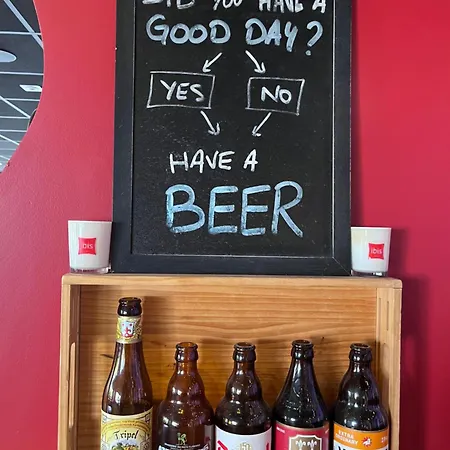 DID YOU HAVE A
GOOD DAY?
YES NO
HAVE A
BEER
ibis
ibis
Tripel
EXTRA
ORDINARY